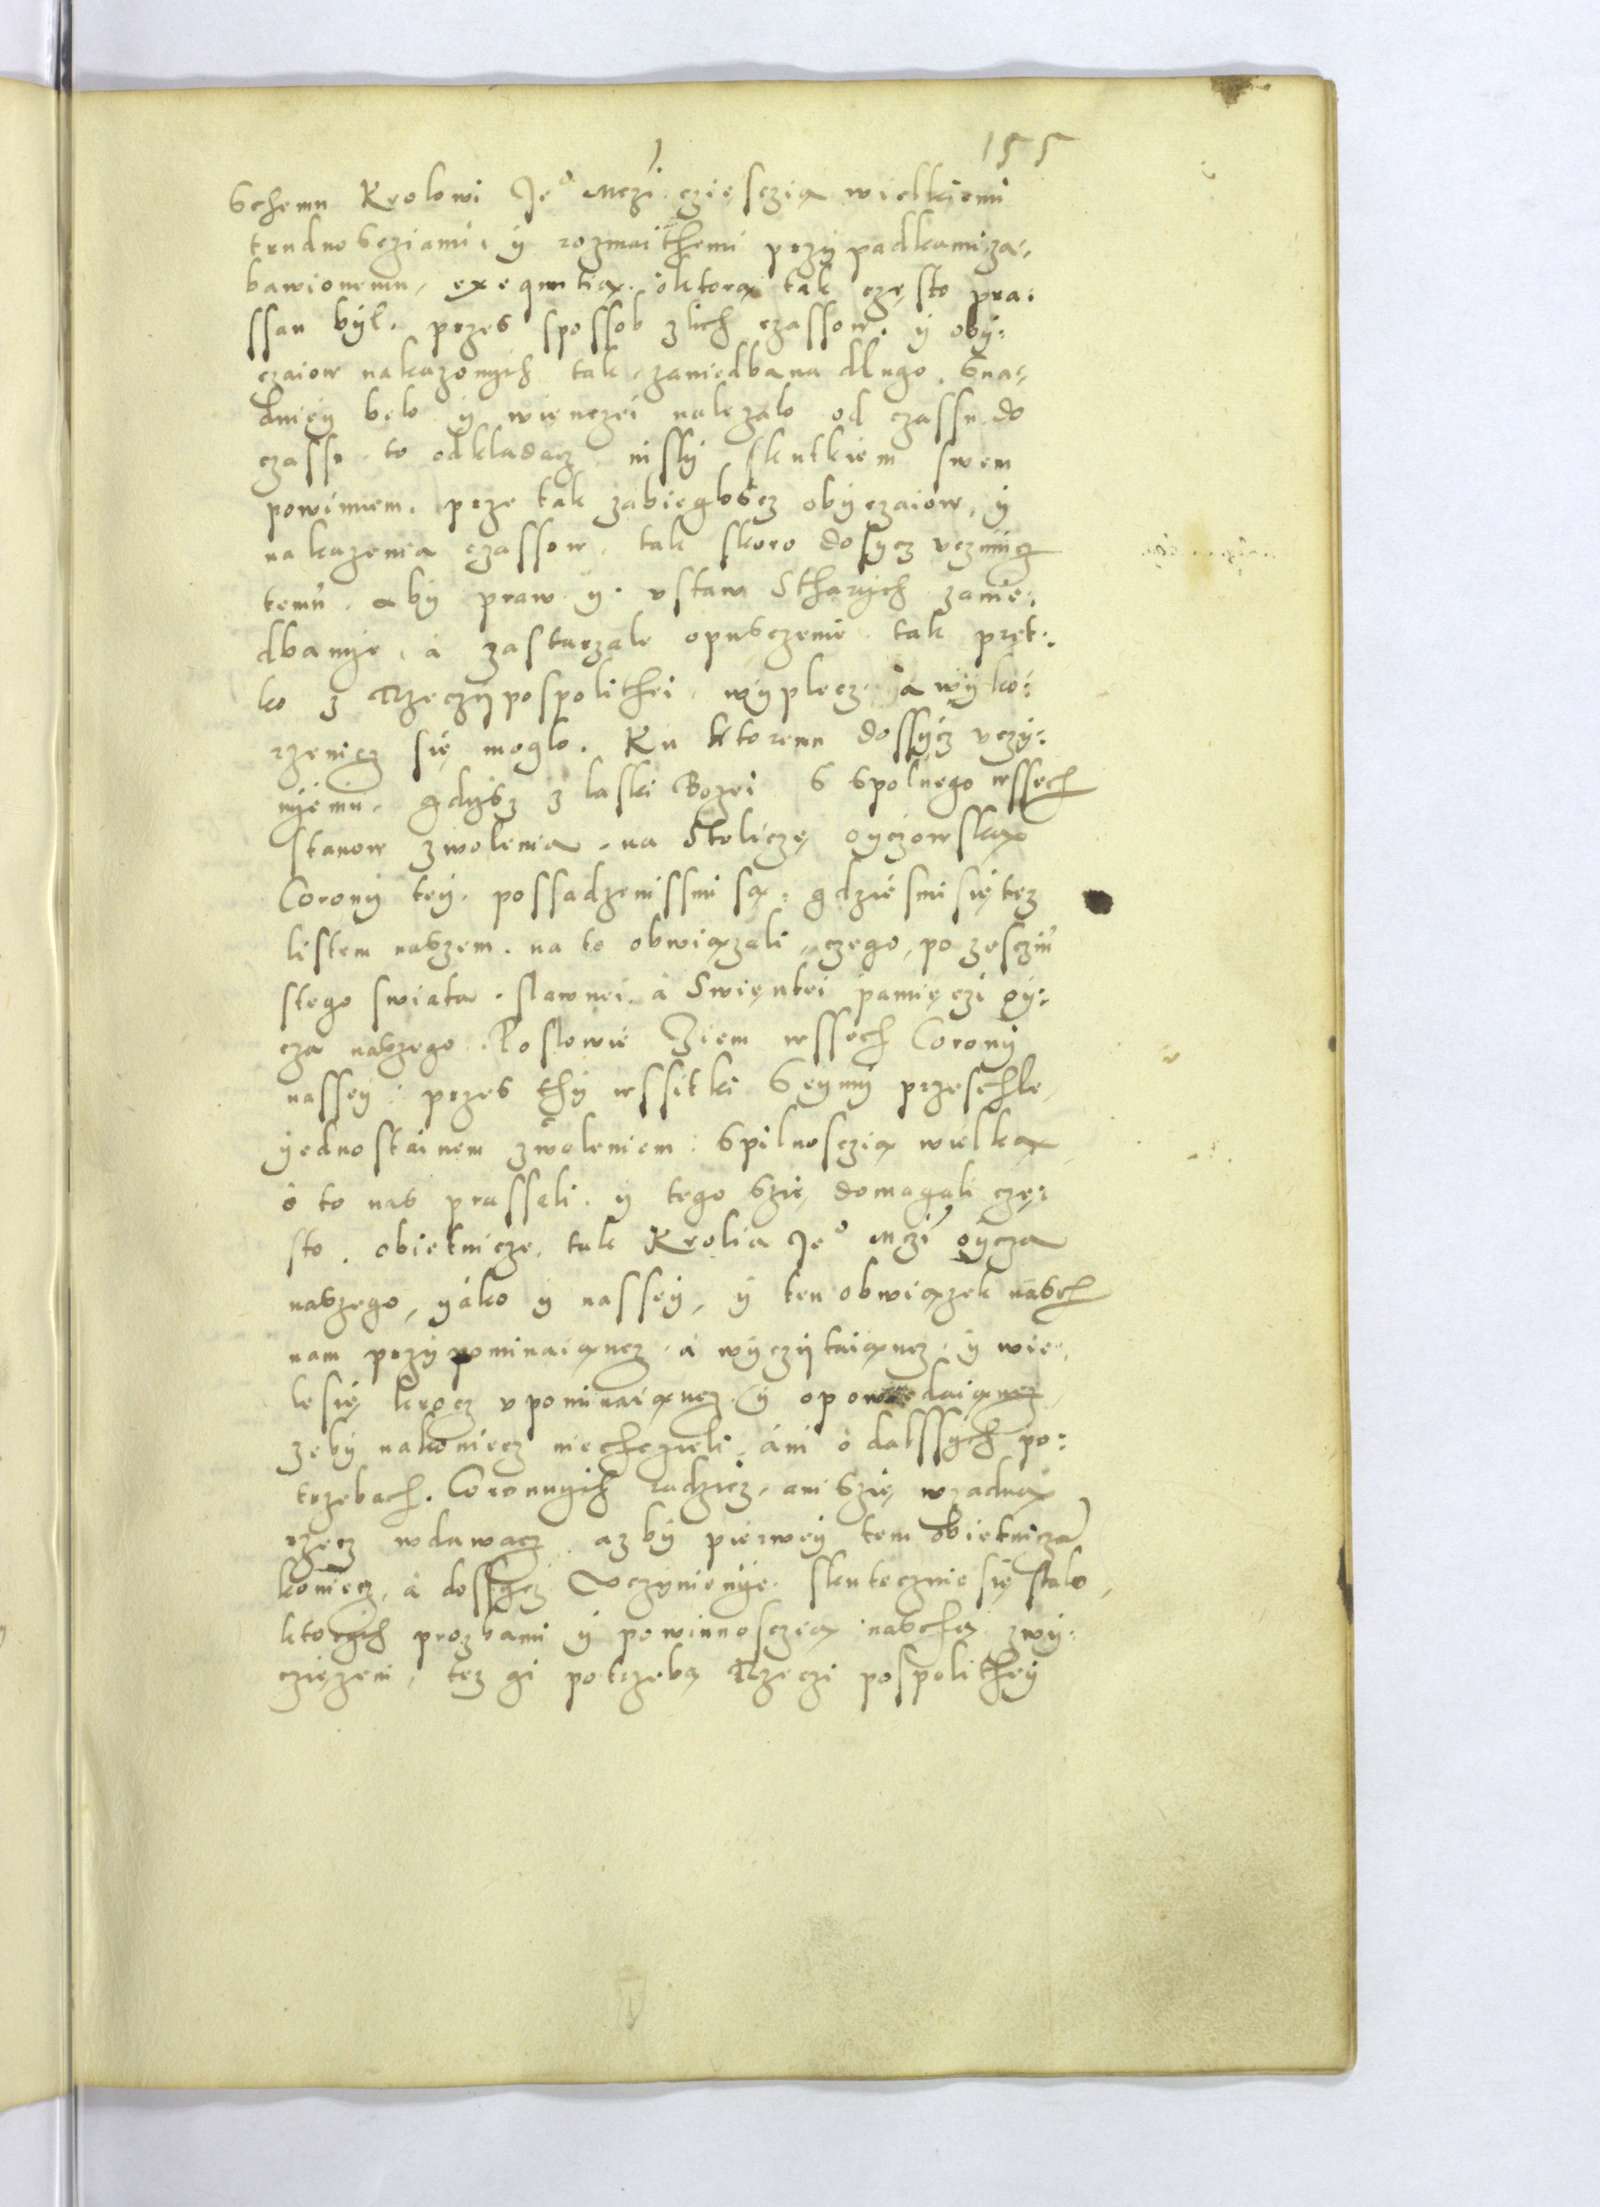 155
schemu Krolowi Je° Mczi. czięsczią wielkiemi
trudnosczíami, ÿ rozmaithemi przÿpadkami za-
bawionemu, exequutią. o ktorą tak często pra-
ssan bÿl. przes spossob zlich czassow. ÿ obÿ-
czaiow nakazonÿch tak zaniedbana dlugo. sna-
dnieÿ belo ÿ wienczei nalezalo od czassu do
czassu to odkladacz nisslÿ skutkiem swem
powinnem. prze tak zabiegloscz obÿczaiow, ÿ
nakazenia czassow. tak skoro dosÿcz vczinicz
temu. abÿ praw ÿ vstaw Stharÿch zanie-
dbanÿe, á zastarzale opusczenie tak pręt-
ko z Rzeczÿpospolithei, wÿplecz á wÿko-
rzenicz się moglo. Ku ktoremu dossÿcz vczÿ-
nÿemu, gdÿsz z laski Bozei s spolnego wssech
stanow zwolenia, na Stoliczę oyczowską
Coronÿ teÿ. possadzenissmi są. gdziesmi się tez
listem naszem. na to obwiązali, czego, po zesczíu
stego swiata. slawnei á Swiętei pamięczi oÿ-
cza naszego. Poslowie Ziem wssech Coronÿ
nasseÿ: przes thÿ wssitki Seÿmÿ przeschle,
ÿednostainem zwoleniem: spilnosczią wielką
o to nas prasseli. ÿ tego szię domagali czę-
sto. obietnicze, tak Krolia Je° Mczi oÿcza
naszego, ÿako ÿ nasseÿ, ÿ ten obwiązek nasch
nam przÿpominaiąncz á wÿczÿtaiąncz, ÿ wie-
lesię krocz vpominaiąncz. ÿ opowiedaiąncz
zebÿ nakoniecz niechczieli, áni o dalssÿch po-
trzebach. Coronnÿch radzicz, ani szię wzadną
rzecz wdawacz. azbÿ pierweÿ tem obietnicza
koniecz, á dossÿcz Vczÿnienÿe skutecznie się stalo,
ktorÿch prozbami ÿ powinnosczią naschą zwÿ-
czięzeni, tez gi potrzebą Rzeczi pospolitheÿ